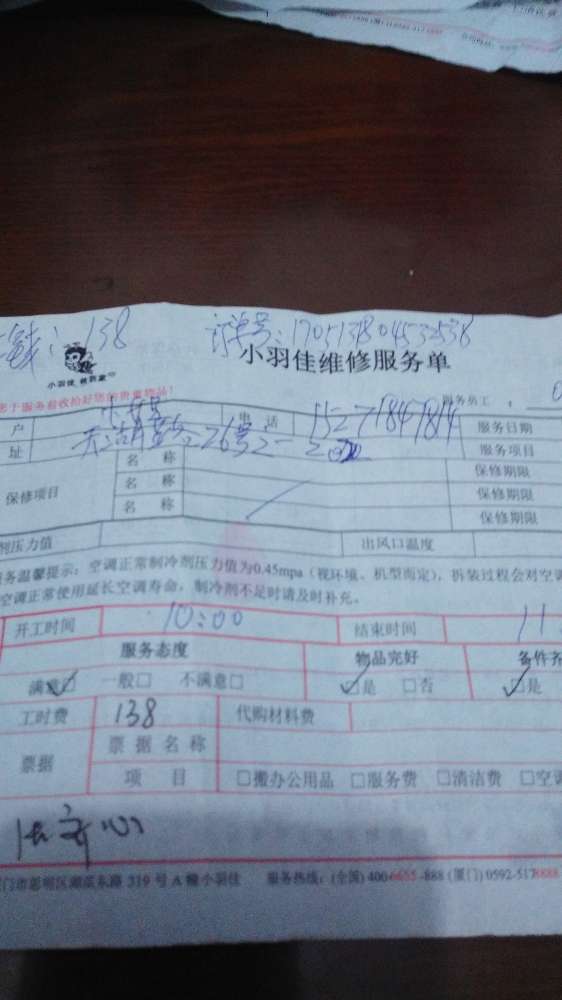 钱: 138 订单号: 170513804532538
小羽佳 修到家
小羽佳维修服务单
服务验收给好您的贵重物品!
服务员工:
户 电话 15271847814 服务日期
址 26号2- 服务项目
保修项目 名 称 保修期限
名 称 保修期限
名 称 保修期限
剂压力值 出风口温度
务温馨提示:空调正常制冷剂压力值为0.45mpa(视环境、机型而定),拆装过程会对空调
空调正常使用延长空调寿命,制冷剂不足时请及时补充。
开工时间 10:00 结束时间 11
服务态度 物品完好 备件齐
满意☑ 一般□ 不满意□ ☑是 □否 ☑是
工时费 138 代购材料费
票据 票据名称
项 目 □搬办公用品 □服务费 □清洁费 □空调
门市思明区湖滨东路 319 号 A 幢小羽佳 服务热线:(全国) 400-6655-888 (厦门) 0592-5178888